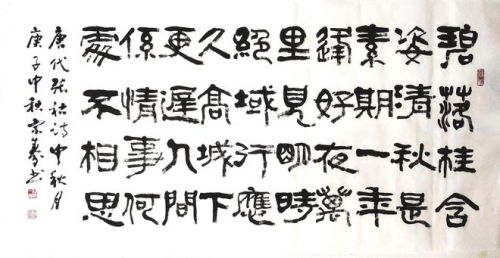 碧落桂含
姿清秋是
素期一年
逢好夜萬
里見明時
絕域行應
久高城下
更遲人間
係情事何
處不相思
唐代张祜诗中秋月
庚子中秋京书